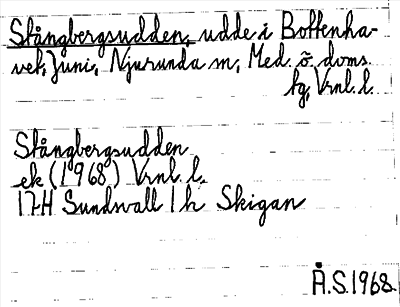 Stångbergsudden, udde i Bottenha-
vet, Juni, Njurunda sn, Med. ö. doms.
tg, Vrnl. l.
Stångbergsudden
ek (1968) Vrnl. l.
17H Sundsvall 1h Skigan
Å.S.1968